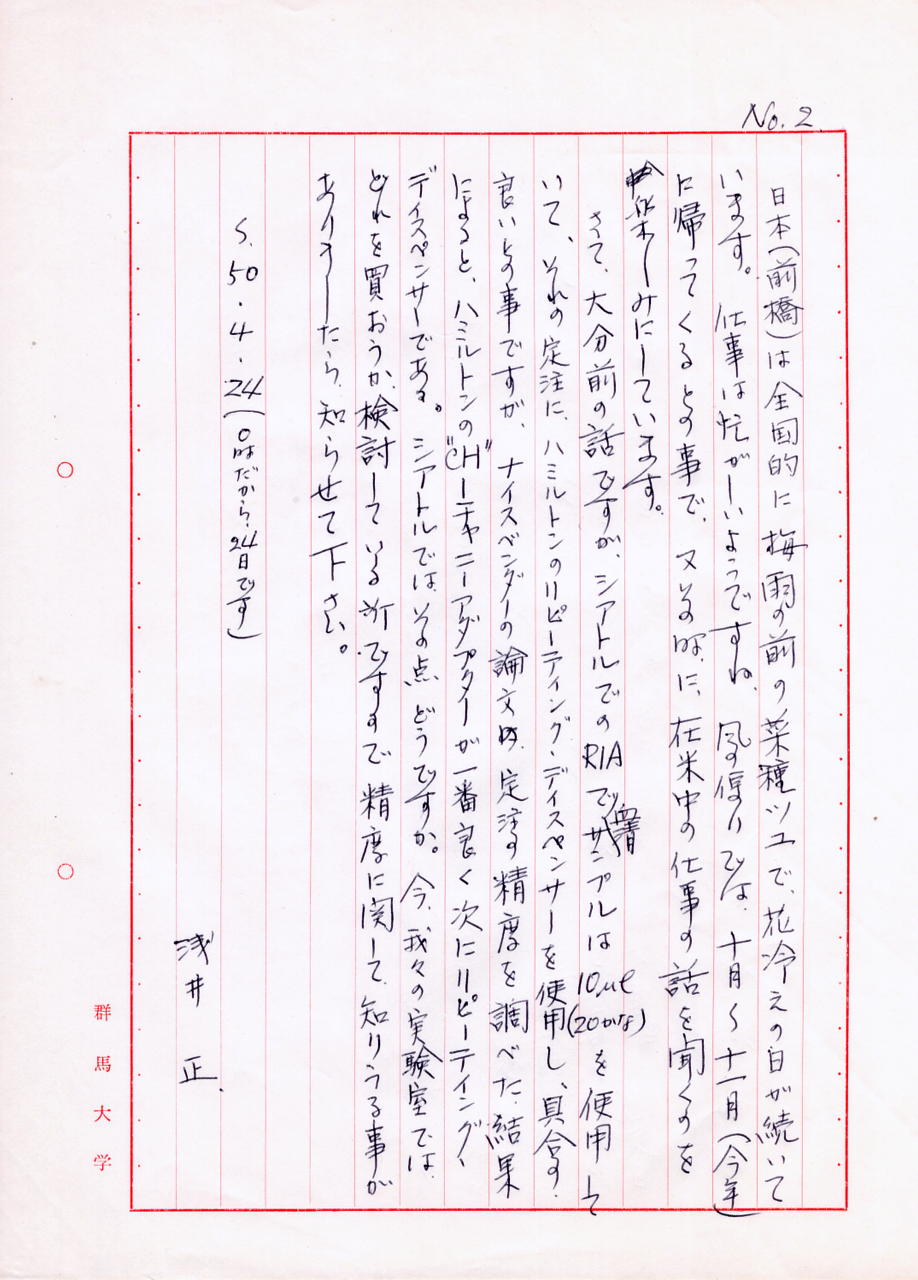 No. 2.
日本(前橋)は全国的に梅雨の前の菜種ツユで、花冷えの日が続いて
います。仕事は忙がしいようですね、風の便りでは、十月〜十一月(今年)
に帰ってくるとの事で、又その時に、在米中の仕事の話を聞くのを
楽しみにしています。
さて、大分前の話ですが、シアトルでのRIAで血清サンプルは10μl(20かな)を使用して
いて、それの定注に、ハミルトンのリピーティング・ディスペンサーを使用し、具合す.
良いとの事ですが、ナイスベンダーの論文は、定注す精度を調べた結果
によると、ハミルトンの"CH"ーチャニーアダプターが一番良く次にリピーティング、
ディスペンサーである。シアトルではその点どうですか。今、我々の実験室では
どれを買おうか、検討している所ですすで精度に関して、知りうる事が
ありましたら、知らせて下さい。
S. 50・4・24(0時だから、24日です)
浅井 正.
群馬大学